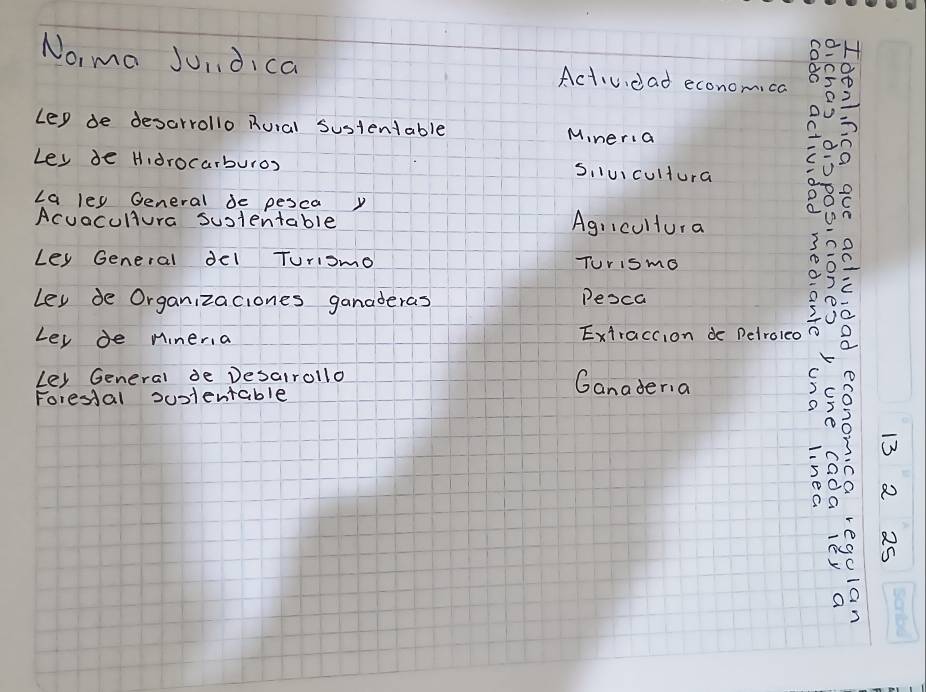 Norma Juridica
Actividad economica
Ley de desarrollo Rural Sustentable
Mineria
Ley de Hidrocarburos
Silvicultura
La ley General de pesca y
Acuacultura sustentable
Agricultura
Ley General del Turismo
Turismo
Ley de Organizaciones ganaderas
Pesca
Ley de Mineria
Extraccion de Petroleo
Ley General de Desarrollo
Forestal sustentable
Ganaderia
Identifica que actividad economica regulan
dichas disposiciones y une cada ley a
cada actividad mediante una linea
13 2 25
Scribe